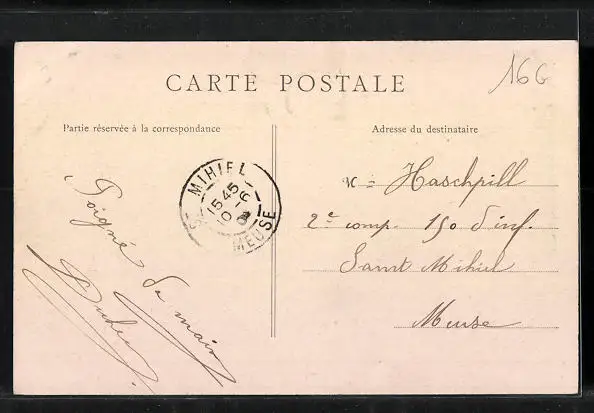 CARTE POSTALE
16G
Partie réservée à la correspondance
Adresse du destinataire
Poigné de main
ST MIHIEL
15 45
MEUSE
M = Haschpill
2e comp. 150 d'inf.
Saint Mihiel
Meuse